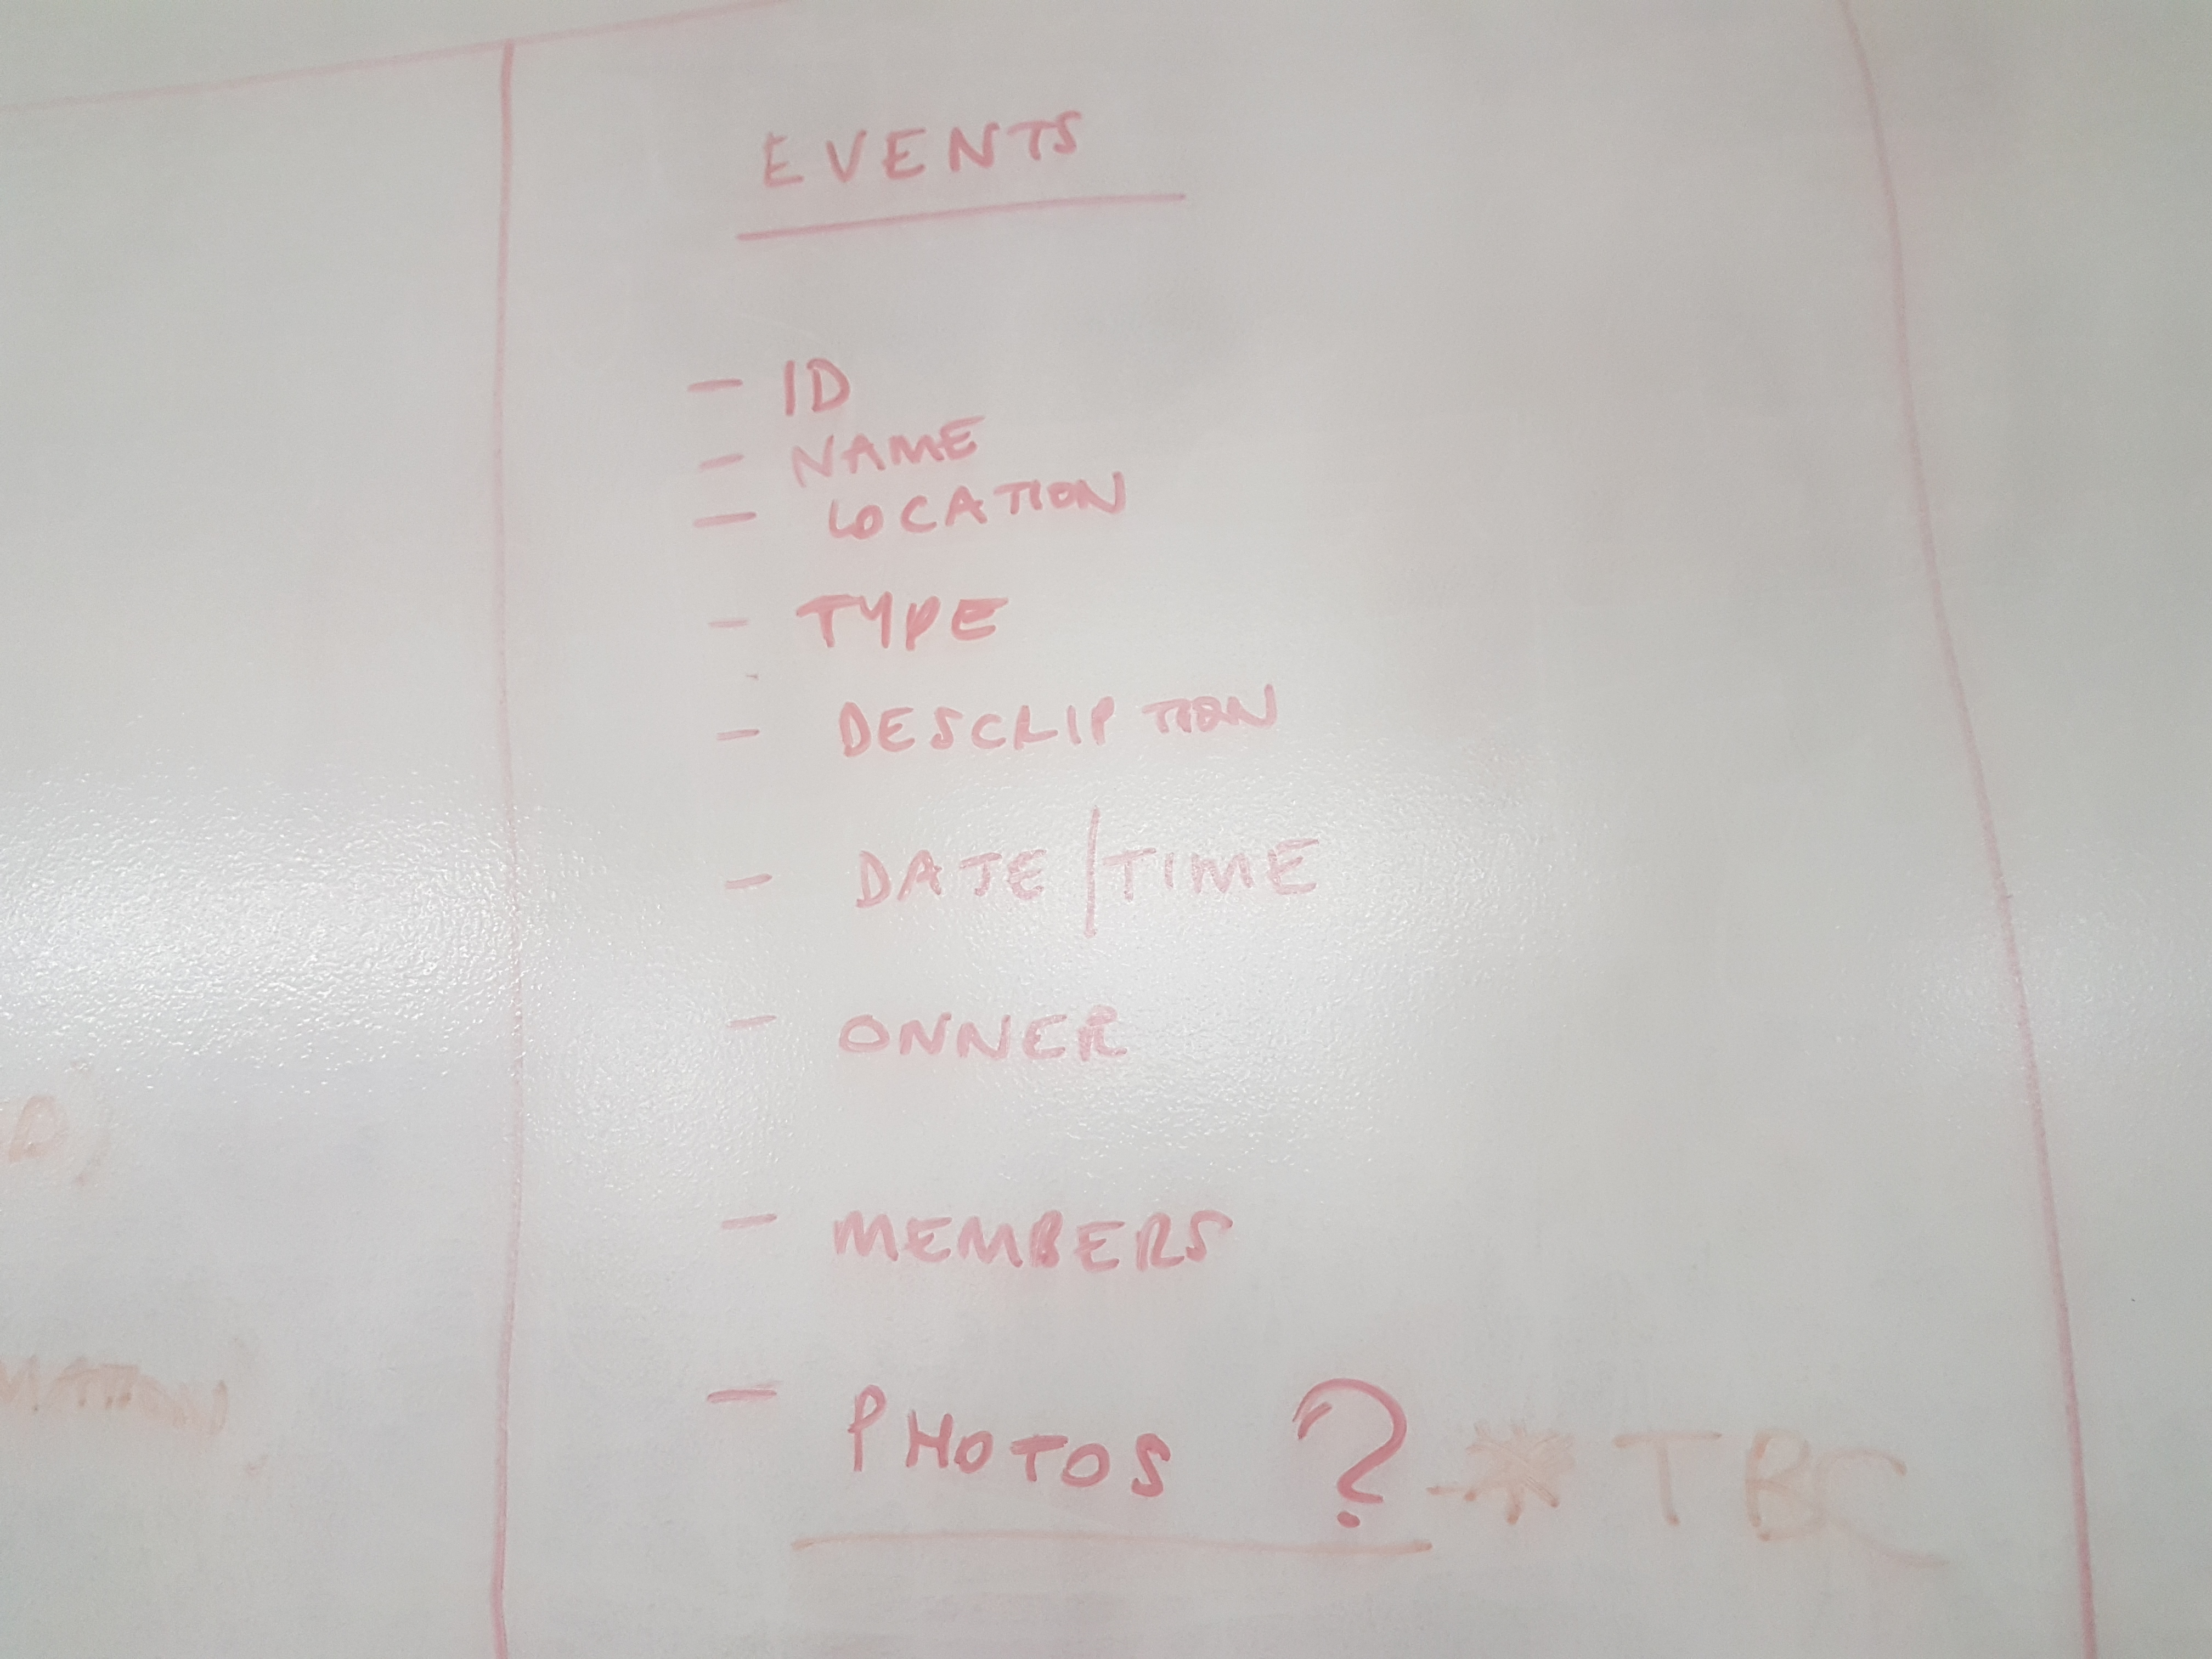 EVENTS
- ID
- NAME
- LOCATION
- TYPE
- DESCRIPTION
- DATE/TIME
- ONNER
- MEMBERS
- PHOTOS ? -* TBC